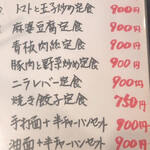 トマトと玉子炒め定食 900円
麻婆豆腐定食 900円
青椒肉絲定食 900円
豚肉と野菜炒め定食 900円
ニラレバー定食 900円
焼き餃子定食 750円
手打面+半チャーハンセット 900円
油面+半チャーハンセット 900円